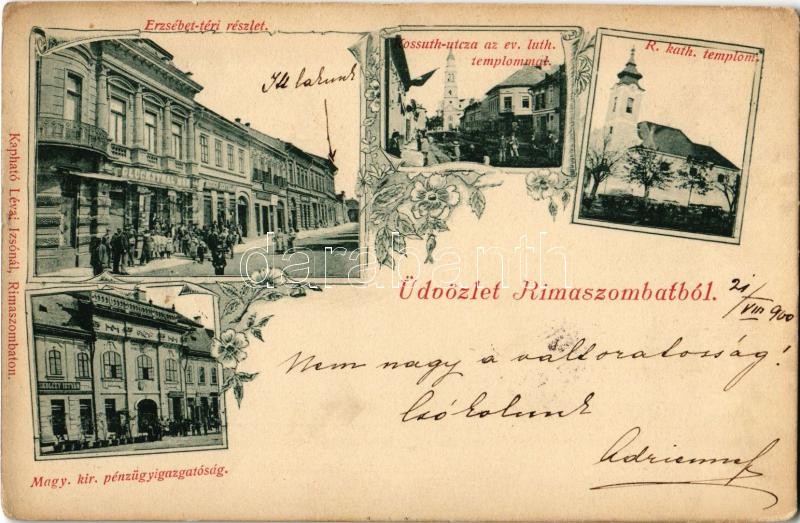 Erzsébet-téri részlet.
Kossuth-utcza az ev. luth.
templommal.
R. kath. templom.
Itt lakunk
KÖLCZEY ISTVÁN
Üdvözlet Rimaszombatból.
21/VIII 900
Nem nagy a változatosság!
Csókolunk
Magy. kir. pénzügyigazgatóság.
Kapható Lévai Izsónál, Rimaszombaton.
darabanth